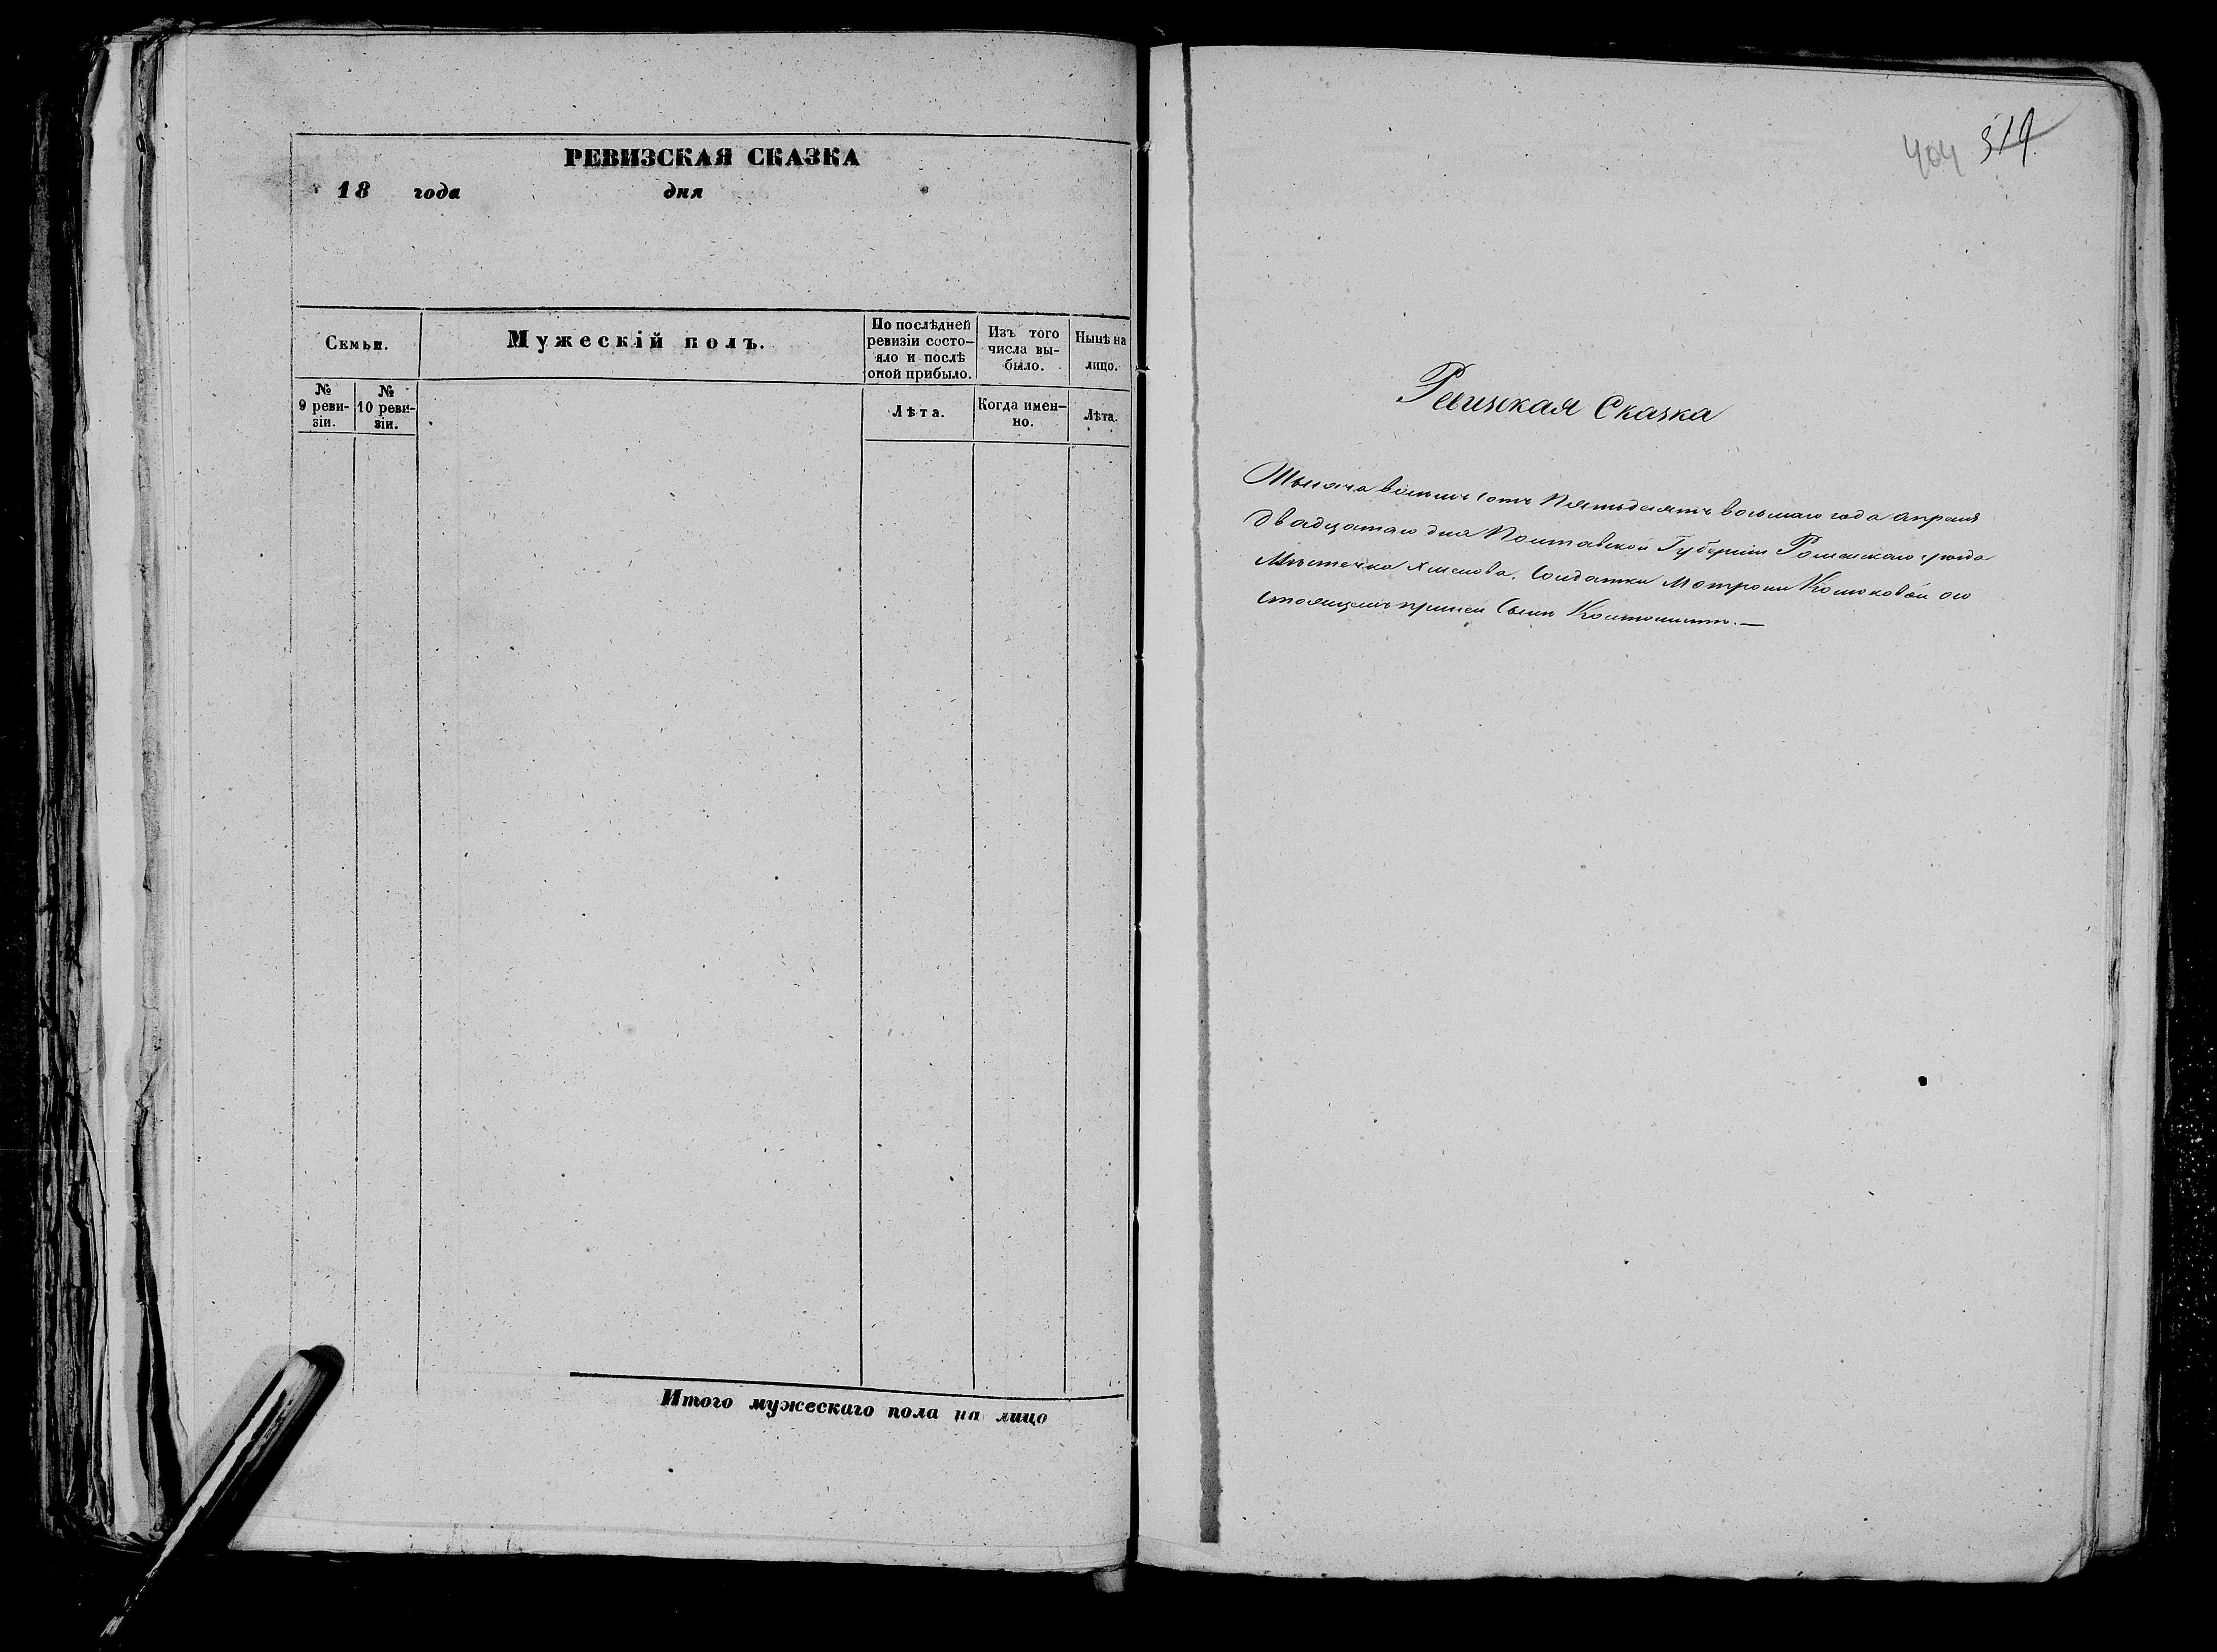 РЕВИЗСКАЯ СКАЗКА
18 года дня
Семьи.
Мужескій полъ.
По послѣдней ревизіи состо-
яло и послѣ
оной прибыло.
Изъ того
числа вы-
было.
Нынѣ на
лицо.
№
9 реви-
зіи.
№
10 реви-
зіи.
Лѣта.
Когда имен-
но.
Лѣта.
Итого мужескаго пола на лицо
404 519.
Ревизская Сказка
Тысяча восемь сотъ Пятьдесятъ восьмаго года апреля
двадцатаго дня Полтавской Губерніи Роменскаго уезда
Мѣстечка Хмелова. Солдатки Мотроны
стоящемъ при ней Сынѣ